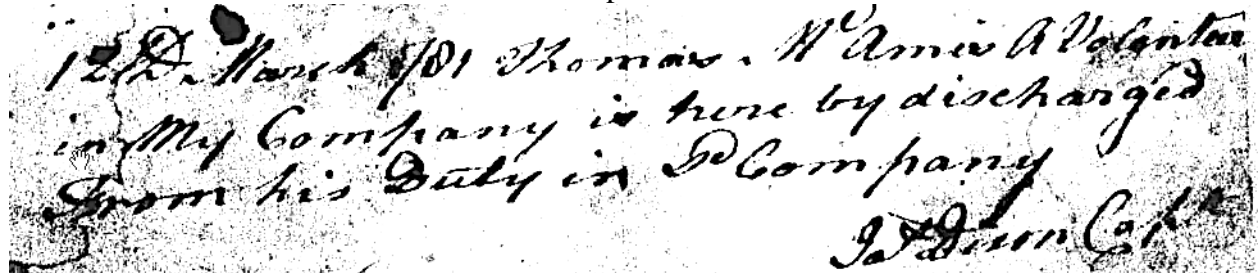 12th March 1781 Thomas Mc Amis A Volenteer
in My Company is here by discharged
From his Duty in Sd Company
Dunn Capt